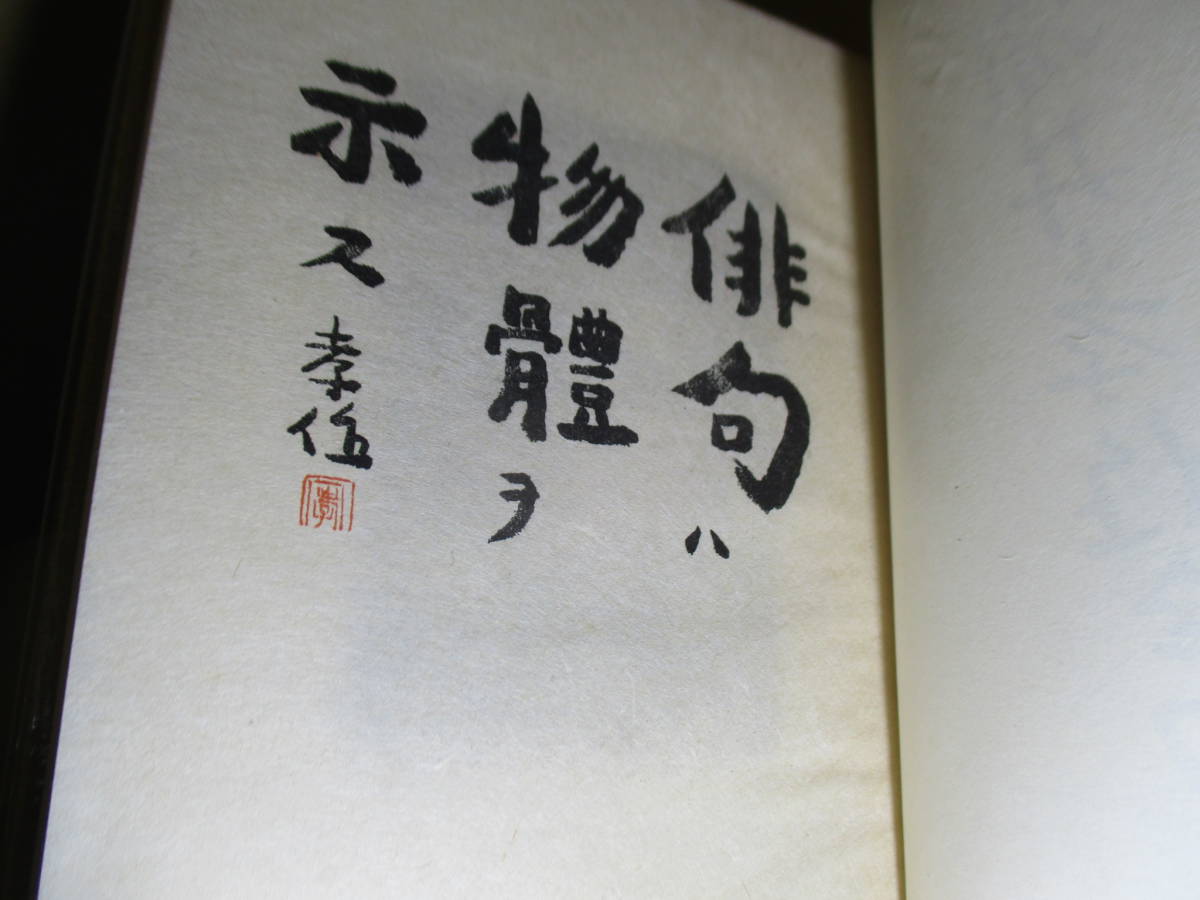 俳句ハ
物體ヲ
示ス 孝作